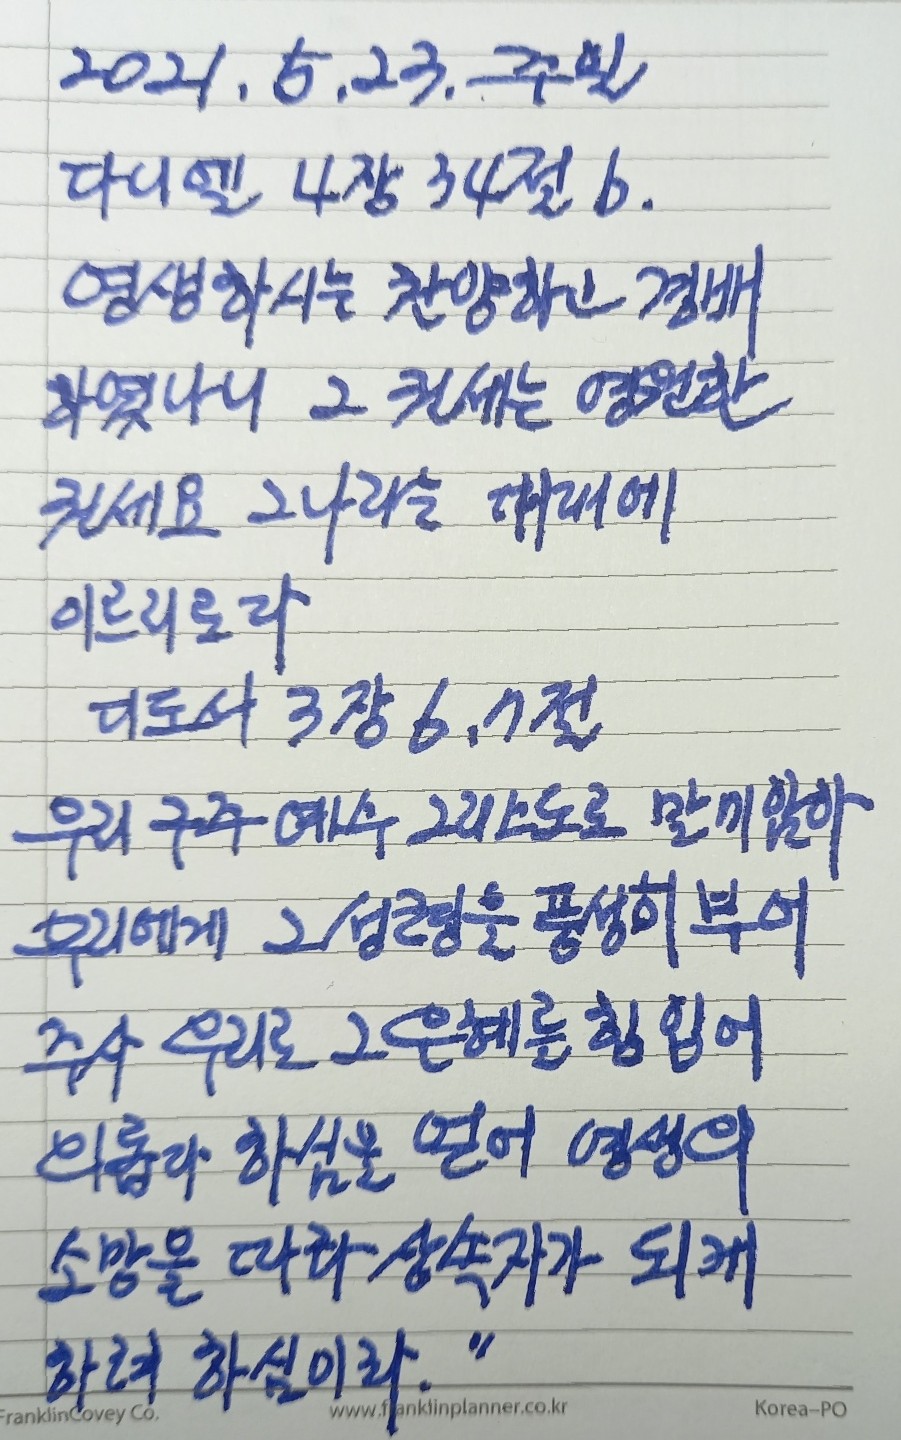 2021. 5. 23. 주일
다니엘 4장 34절 b.
영생하시는 찬양하고 경배
하였나니 그 권세는 영원한
권세요 그나라는 대대에
이르리로다
디도서 3장 6.7절
우리 구주 예수 그리스도로 말미암아
우리에게 그 성령을 풍성히 부어
주사 우리로 그 은혜를 힘입어
의롭다 하심을 얻어 영생의
소망을 따라 상속자가 되게
하려 하심이라."
FranklinCovey Co. www.franklinplanner.co.kr Korea-PO